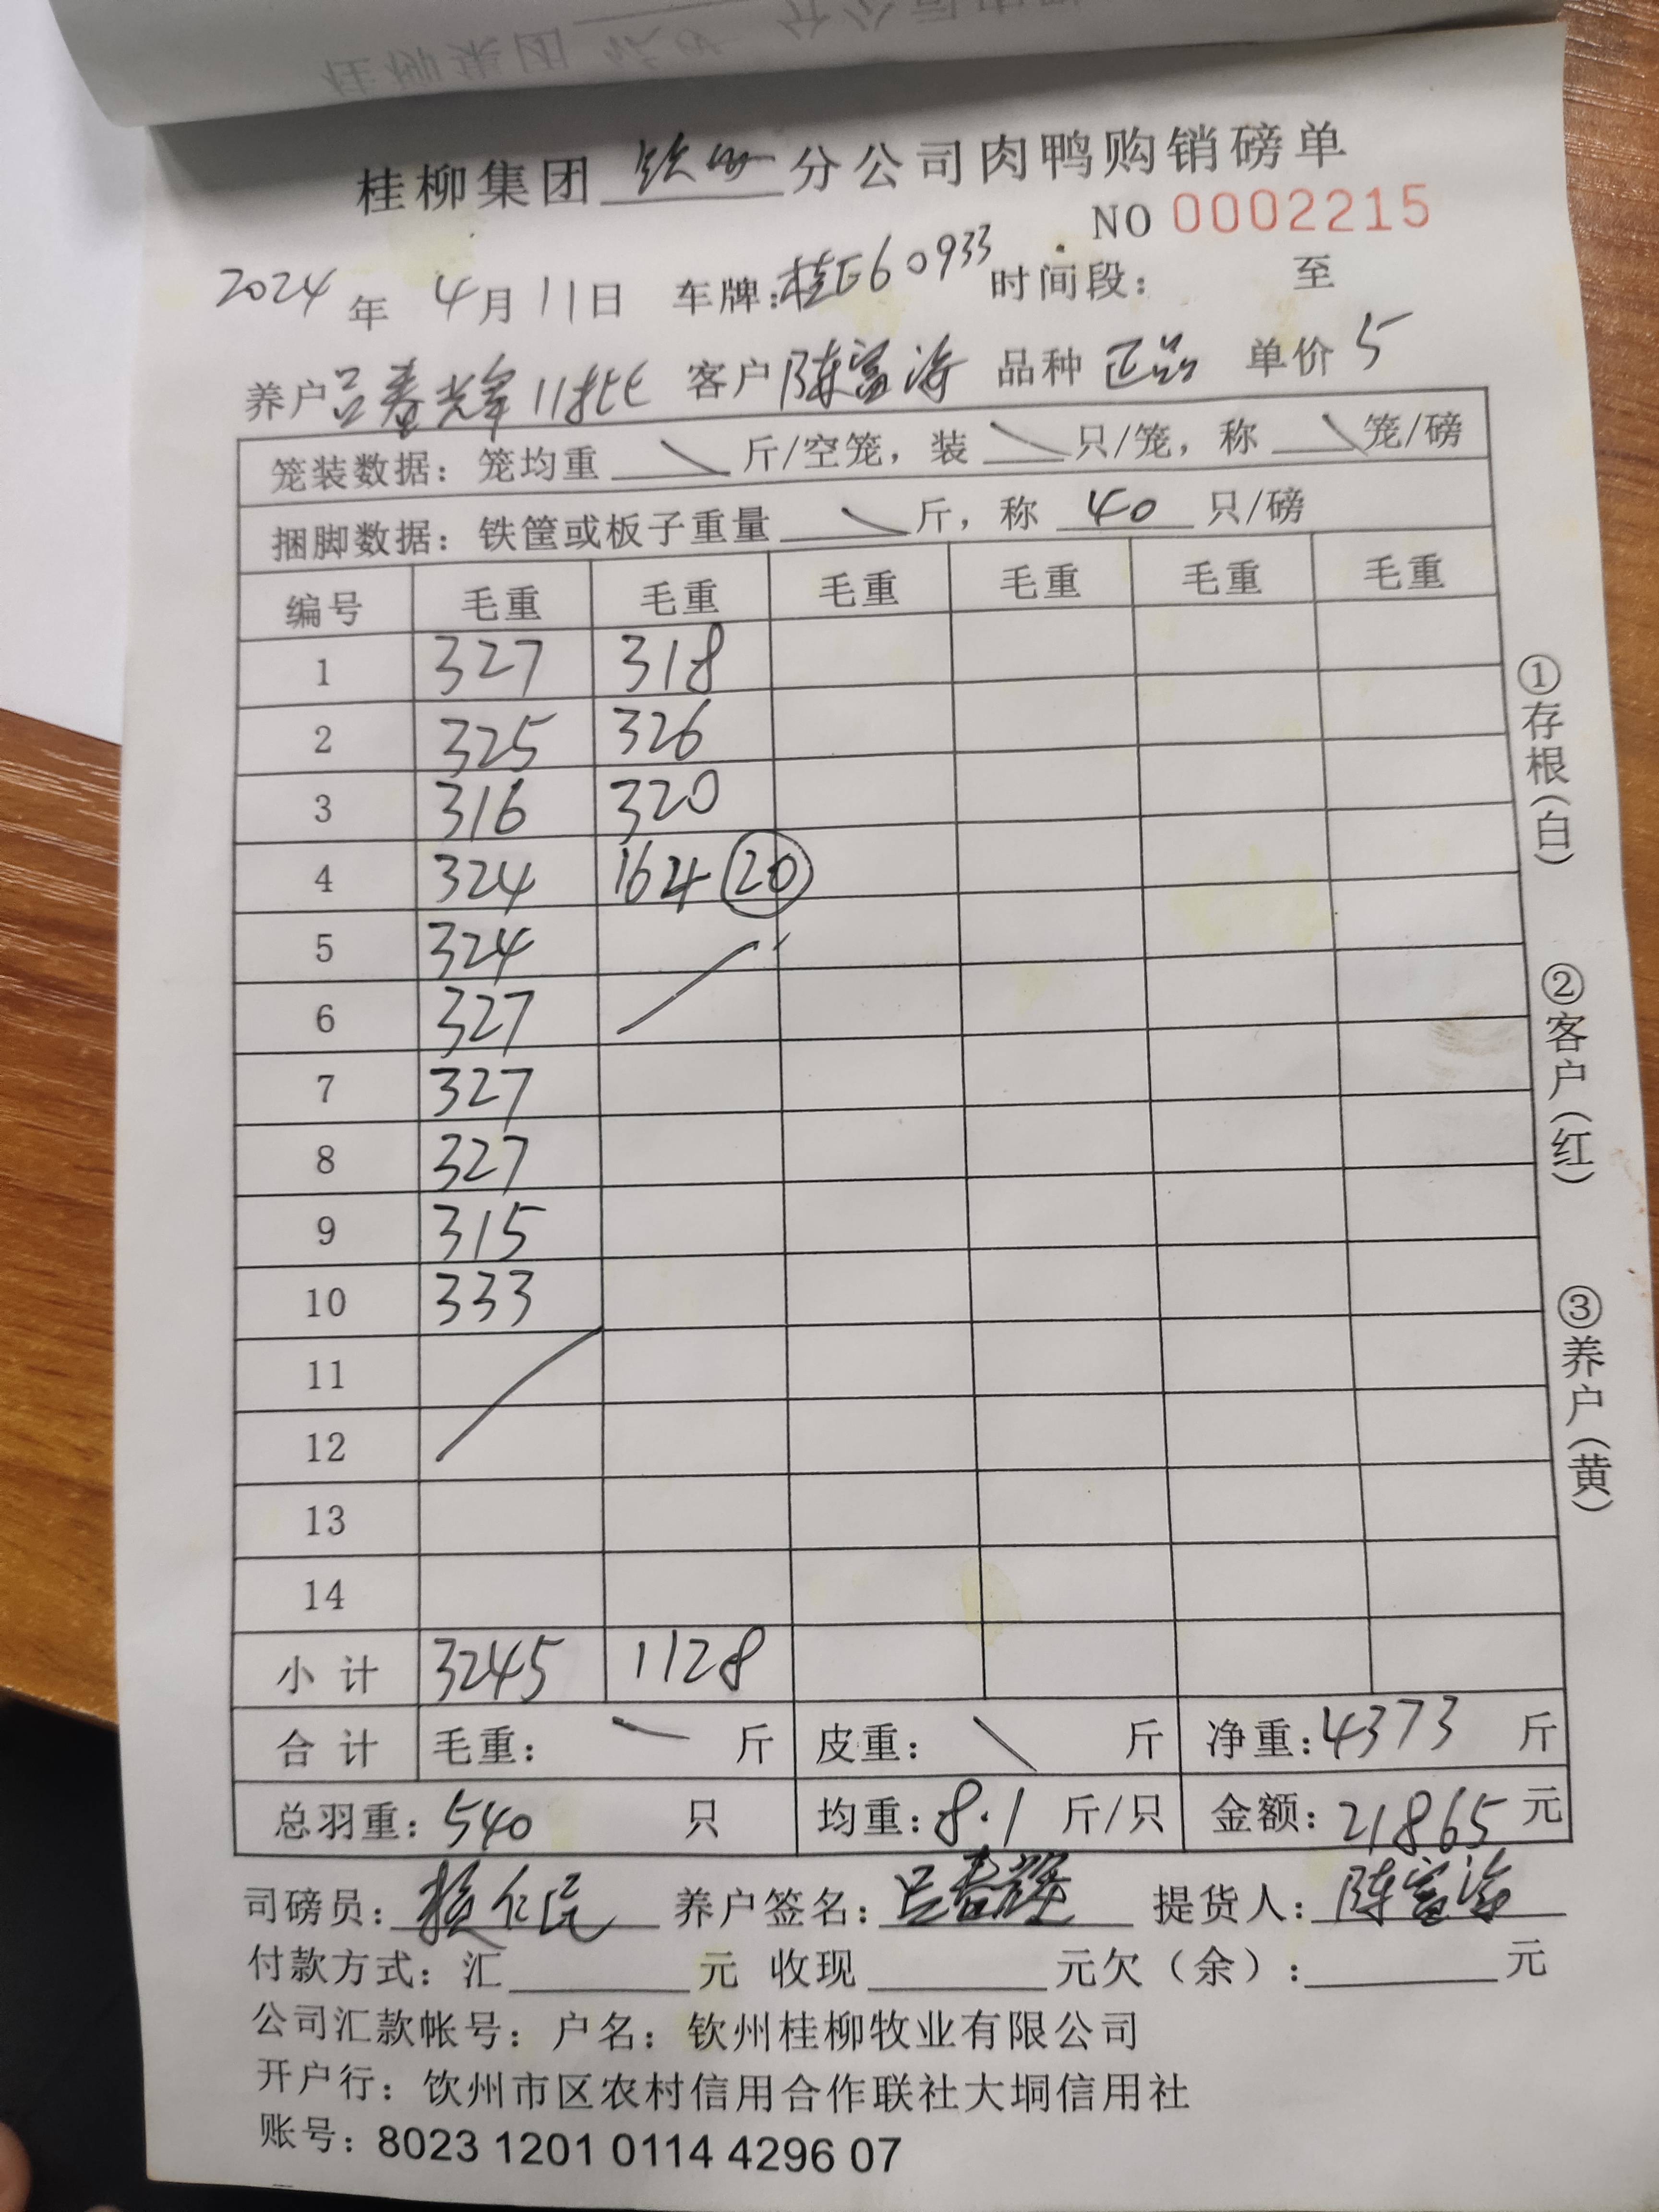 桂柳集团 钦州 分公司肉鸭购销磅单
NO 0002215
2024 年 4月11日 车牌:桂E60933 时间段: 至
养户 吕春光辉 11批 客户 陈富海 品种 正品 单价 5
笼装数据: 笼均重 斤/空笼, 装 只/笼, 称 笼/磅
捆脚数据: 铁筐或板子重量 斤, 称 40 只/磅
编号 毛重 毛重 毛重 毛重 毛重 毛重
1 327 318
2 325 326
3 316 320
4 324 164 20
5 324
6 327
7 327
8 327
9 315
10 333
11
12
13
14
小计 3245 1128
合计 毛重: 斤 皮重: 斤 净重:4373 斤
总羽重: 540 只 均重:8.1 斤/只 金额: 21865 元
司磅员: 仁民 养户签名: 吕春 提货人: 陈富海
付款方式: 汇 元 收现 元欠(余): 元
公司汇款帐号: 户名: 钦州桂柳牧业有限公司
开户行: 钦州市区农村信用合作联社大垌信用社
账号: 8023 1201 0114 4296 07
①存根(白)
②客户(红)
③养户(黄)